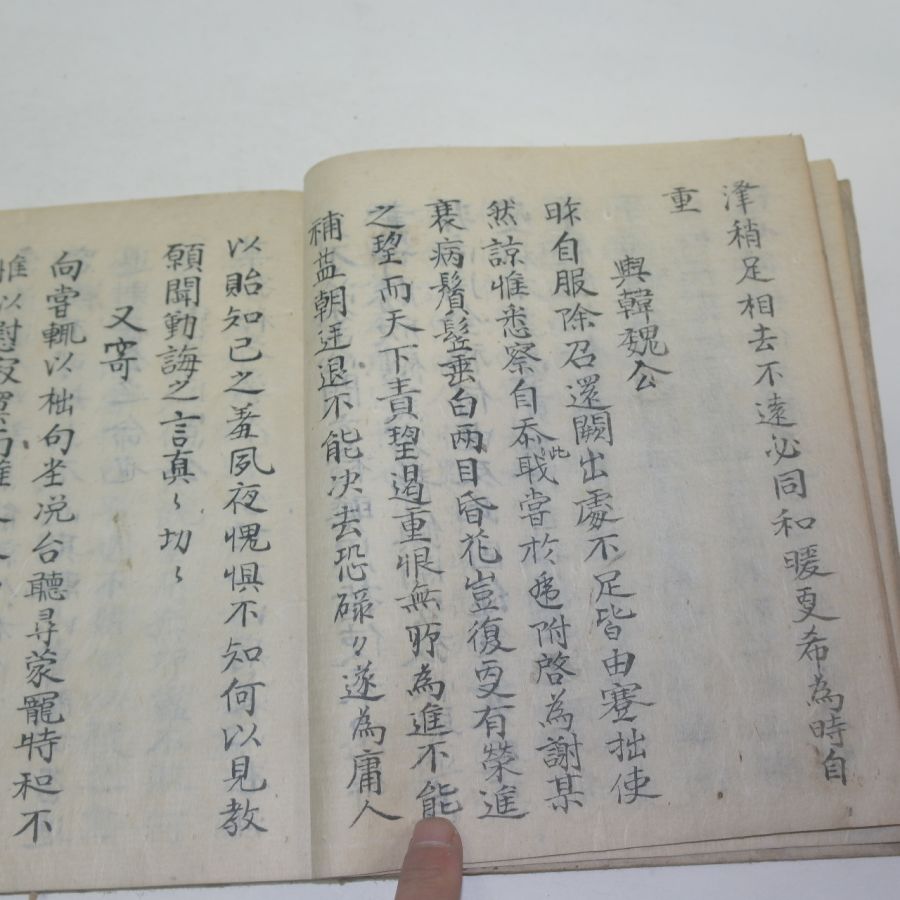 澤稍足相去不遠必同和暖更希為時自
重
與韓魏公
昨自服除召還闕出處不足皆由蹇拙使
然諒惟悉察自忝此職嘗於遞附啓為謝某
衰病鬢髮垂白兩目昏花豈復更有榮進
之望而天下責望過重恨無所為進不能
補益朝廷退不能决去恐碌々遂為庸人
以貽知己之羞夙夜愧惧不知何以見教
願聞勤誨之言真〻切〻
又寄
向嘗輒以拙句坐浼台聽尋蒙寵特和不
惟以慰寂寞而雖